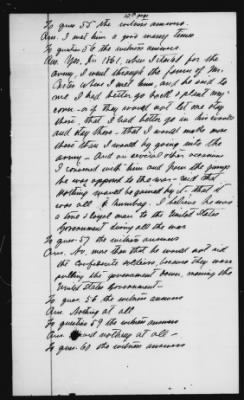 12th page
To ques. 55 the witness answers.
Ans. I met him a good many times
To question 56 the witness answers
Ans. Yes. In 1861, when I started for the
army, I went through the farm of Mr.
Carter when I met him, and he said to
me I had better go back & plant my
corn - or if they would not let me stay
there, that I had better go in his woods
and stay there - that I would make more
there than I would by going into the
army - And on several other occasions
I conversed with him and from the jump
he was opposed to the war - said that
Nothing would be gained by it - that it
was all a humbug. I believe he was
a true & loyal man to the United States
Government during all the war
To ques. 57 the witness answers
Ans. No, more than that he would not aid
the Confederate soldiers, because they were
pulling the government down, meaning the
United States Government.
To ques. 58 the witness answers
Ans. Nothing at all
To question 59 the witness answers
Ans. nothing at all -
To ques. 60 the witness answers